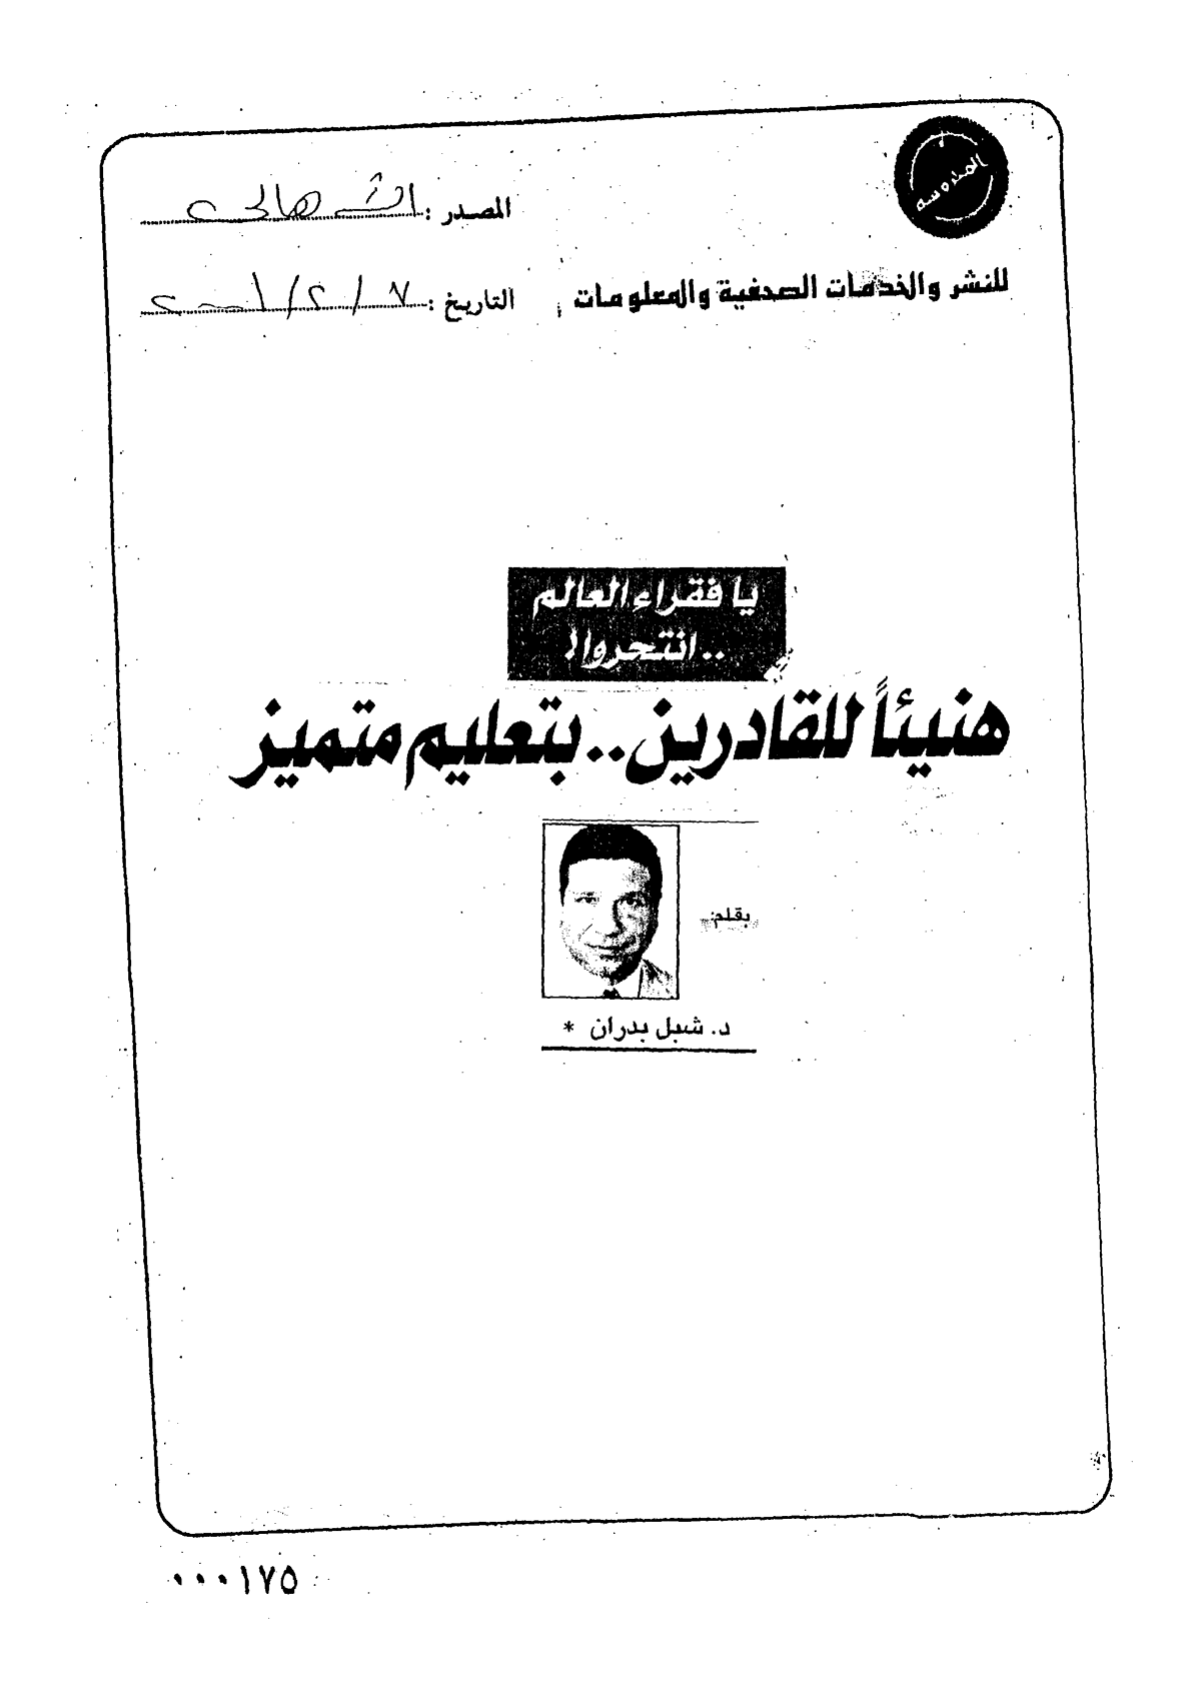 المدوسه
المصدر : الأهالى
للنشر والخدمات الصحفية والمعلومات
التاريخ : ٧ / ٢ / ٢٠٠١
يا فقراء العالم
..انتحروا!
هنيئاً للقادرين.. بتعليم متميز
بقلم:
د. شبل بدران *
٠٠٠١٧٥